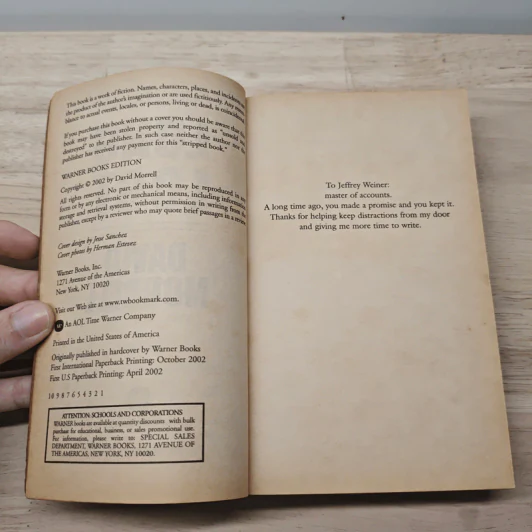 This book is a work of fiction. Names, characters, places, and incidents are
the product of the author's imagination or are used fictitiously. Any resem-
blance to actual events, locales, or persons, living or dead, is coincidental.
If you purchase this book without a cover you should be aware that this
book may have been stolen property and reported as "unsold and
destroyed" to the publisher. In such case neither the author nor the
publisher has received any payment for this "stripped book."
WARNER BOOKS EDITION
Copyright © 2002 by David Morrell
All rights reserved. No part of this book may be reproduced in any
form or by any electronic or mechanical means, including information
storage and retrieval systems, without permission in writing from the
publisher, except by a reviewer who may quote brief passages in a review.
Cover design by Jesse Sanchez
Cover photo by Herman Estevez
Warner Books, Inc.
1271 Avenue of the Americas
New York, NY 10020
Visit our Web site at www.twbookmark.com.
An AOL Time Warner Company
Printed in the United States of America
Originally published in hardcover by Warner Books
First International Paperback Printing: October 2002
First U.S Paperback Printing: April 2002
10 9 8 7 6 5 4 3 2 1
ATTENTION: SCHOOLS AND CORPORATIONS
WARNER books are available at quantity discounts with bulk
purchase for educational, business, or sales promotional use.
For information, please write to: SPECIAL SALES
DEPARTMENT, WARNER BOOKS, 1271 AVENUE OF
THE AMERICAS, NEW YORK, NY 10020.
To Jeffrey Weiner:
master of accounts.
A long time ago, you made a promise and you kept it.
Thanks for helping keep distractions from my door
and giving me more time to write.